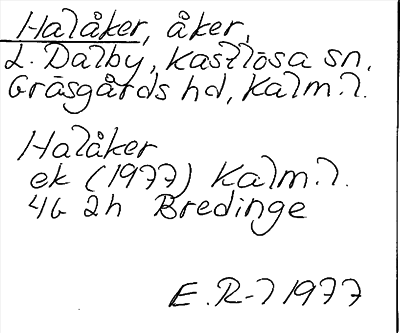 Halåker, åker,
L. Dalby, Kastlösa sn,
Gräsgårds hd, Kalm. l.
Halåker
ek (1977) Kalm. l.
4G 2h Bredinge
E. R-l 1977